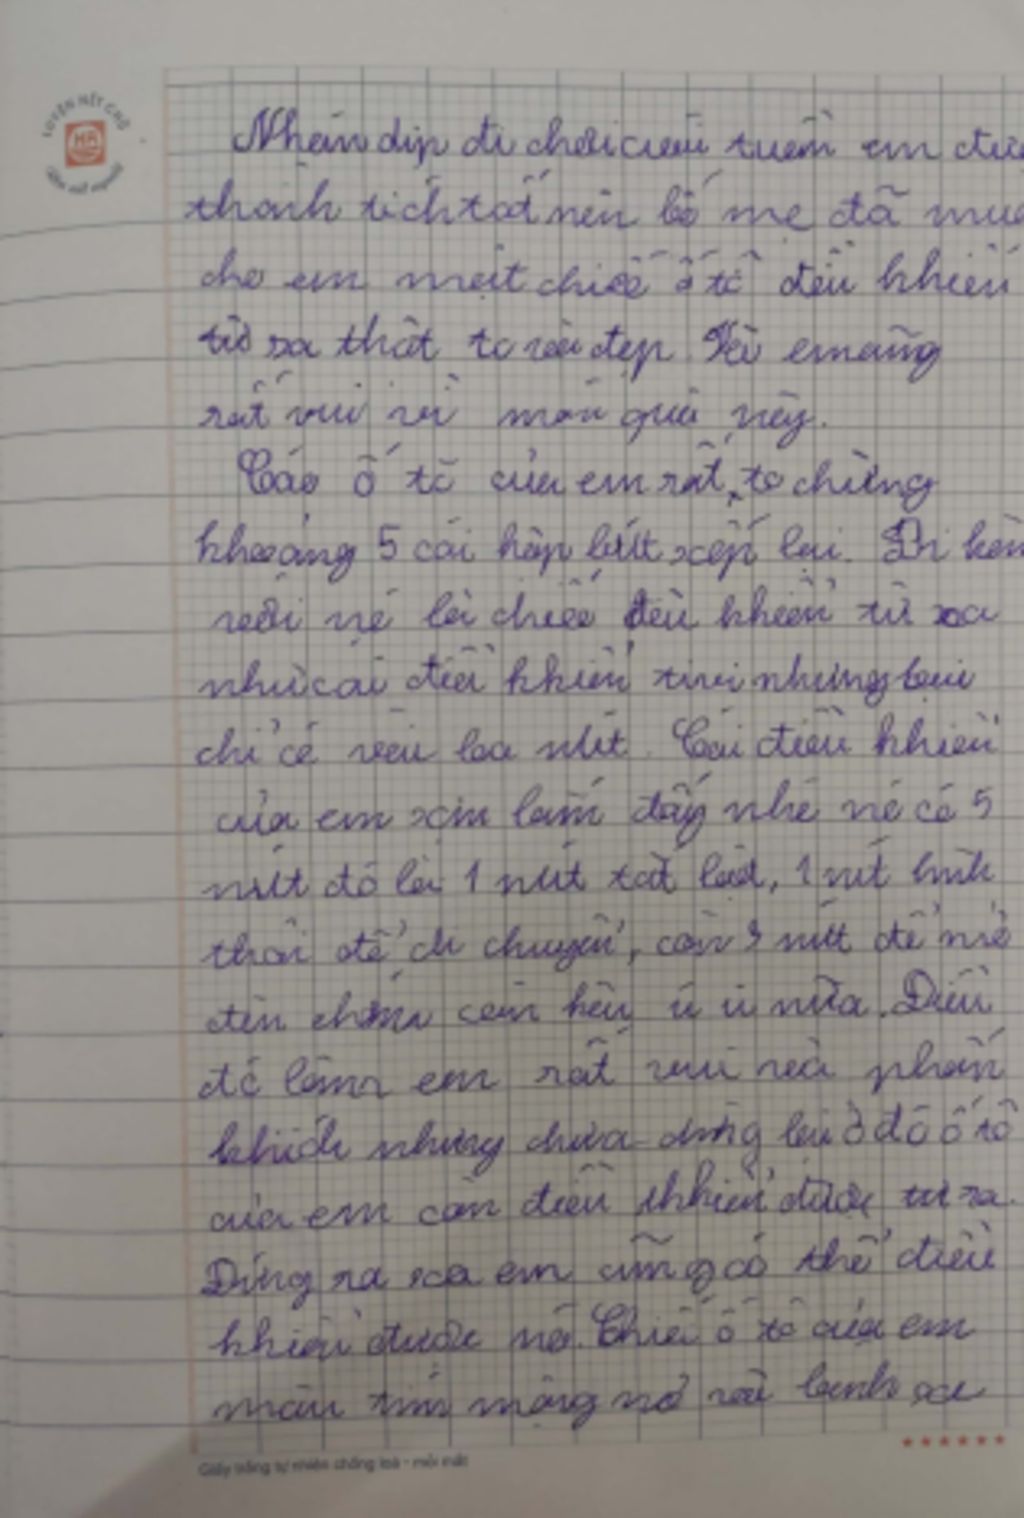 LUYỆN NÉT CHỮ
HA
Nhân dịp đi chơi cuối tuần em đượ
thành tích tốt nên bố mẹ đã mua
cho em một chiế ô tô điều khiển
từ xa thật to và đẹp. Và em cũng
rất vui vì món quà này.
ô tô của em rất to chừng
khoảng 5 cái hộp bút xếp lại. Đi kèm
với nó là chiế điều khiển từ xa
như cái điều khiển tivi nhưng
chỉ có vài loa nút. Cái điều khiển
của em xịn lắm đấy nhé nó có 5
nút đó là 1 nút tắt bật, 1 nút hình
thoi để di chuyển, còn 3 nút để mở
đèn còn nữa. Điều
đó làm em rất vui và phấn
khích nhưng chưa dừng lại ở đó ô tô
của em còn điều khiển được từ xa.
Đứng ra xa em cũng có thể điều
khiển được nó. Chiế ô tô của em
màu tím mộng mơ và bánh xe
Giấy trắng tự nhiên chống loá - mỏi mắt